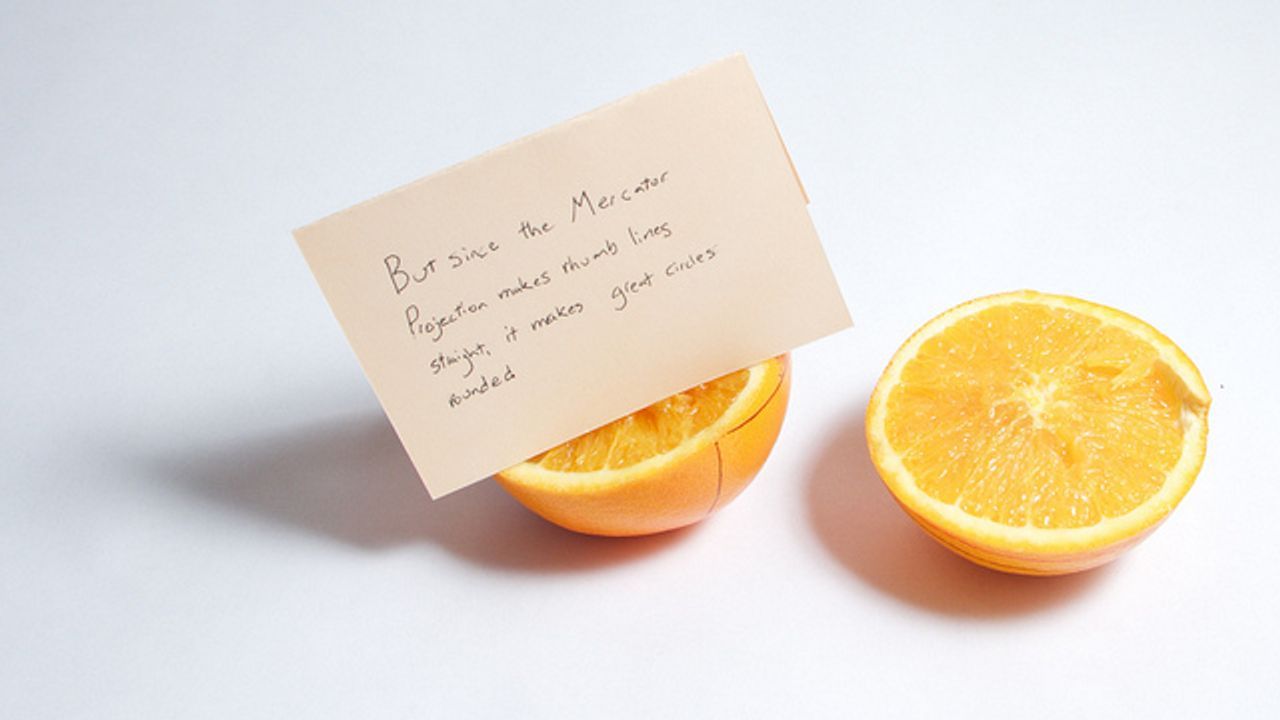 But since the Mercator
Projection makes rhumb lines
straight, it makes great circles
rounded